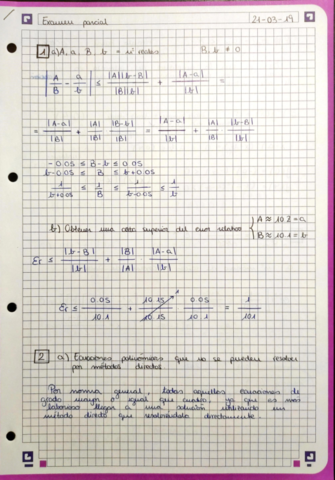 Examen parcial 21-03-19
1 a) A, a, B, b = nº reales B, b ≠ 0
|A/B - a/b| ≤ |A||b-B| / |B||b| + |A-a| / |b| =
= |A-a| / |B| + |A| / |B| |B-b| / |b| = |A-a| / |b| + |A| / |B| |b-B| / |b|
-0.05 ≤ B-b ≤ 0.05
b-0.05 ≤ B ≤ b+0.05
1/(b+0.05) ≤ 1/B ≤ 1/(b-0.05) ≤ 1/b
b) Obtener una cota superior del error relativo { A ≈ 10.2 = a
B ≈ 10.1 = b
Er ≤ |b-B| / |b| + |B| / |A| |A-a| / |b|
Er ≤ 0.05 / 10.1 + 10.15 / 10.15 0.05 / 10.1 = 1 / 101
2 a) Ecuaciones polinómicas que no se pueden resolver
por métodos directos
Por norma general, todas aquellas ecuaciones de
grado mayor o igual que cuatro, ya que es más
laborioso llegar a una solución utilizando un
método directo que resolviéndolo directamente.